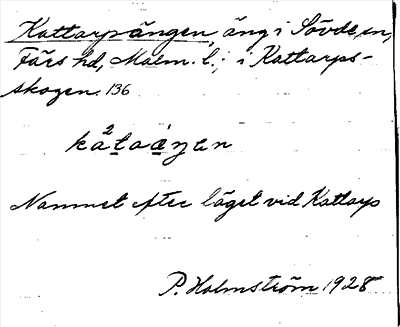 Kattarpsängen, äng i Sövde sn,
Färs hd, Malm. l.; i Kattarps-
skogen. 136
Namnet efter läget vid Kattarp
P. Holmström 1928